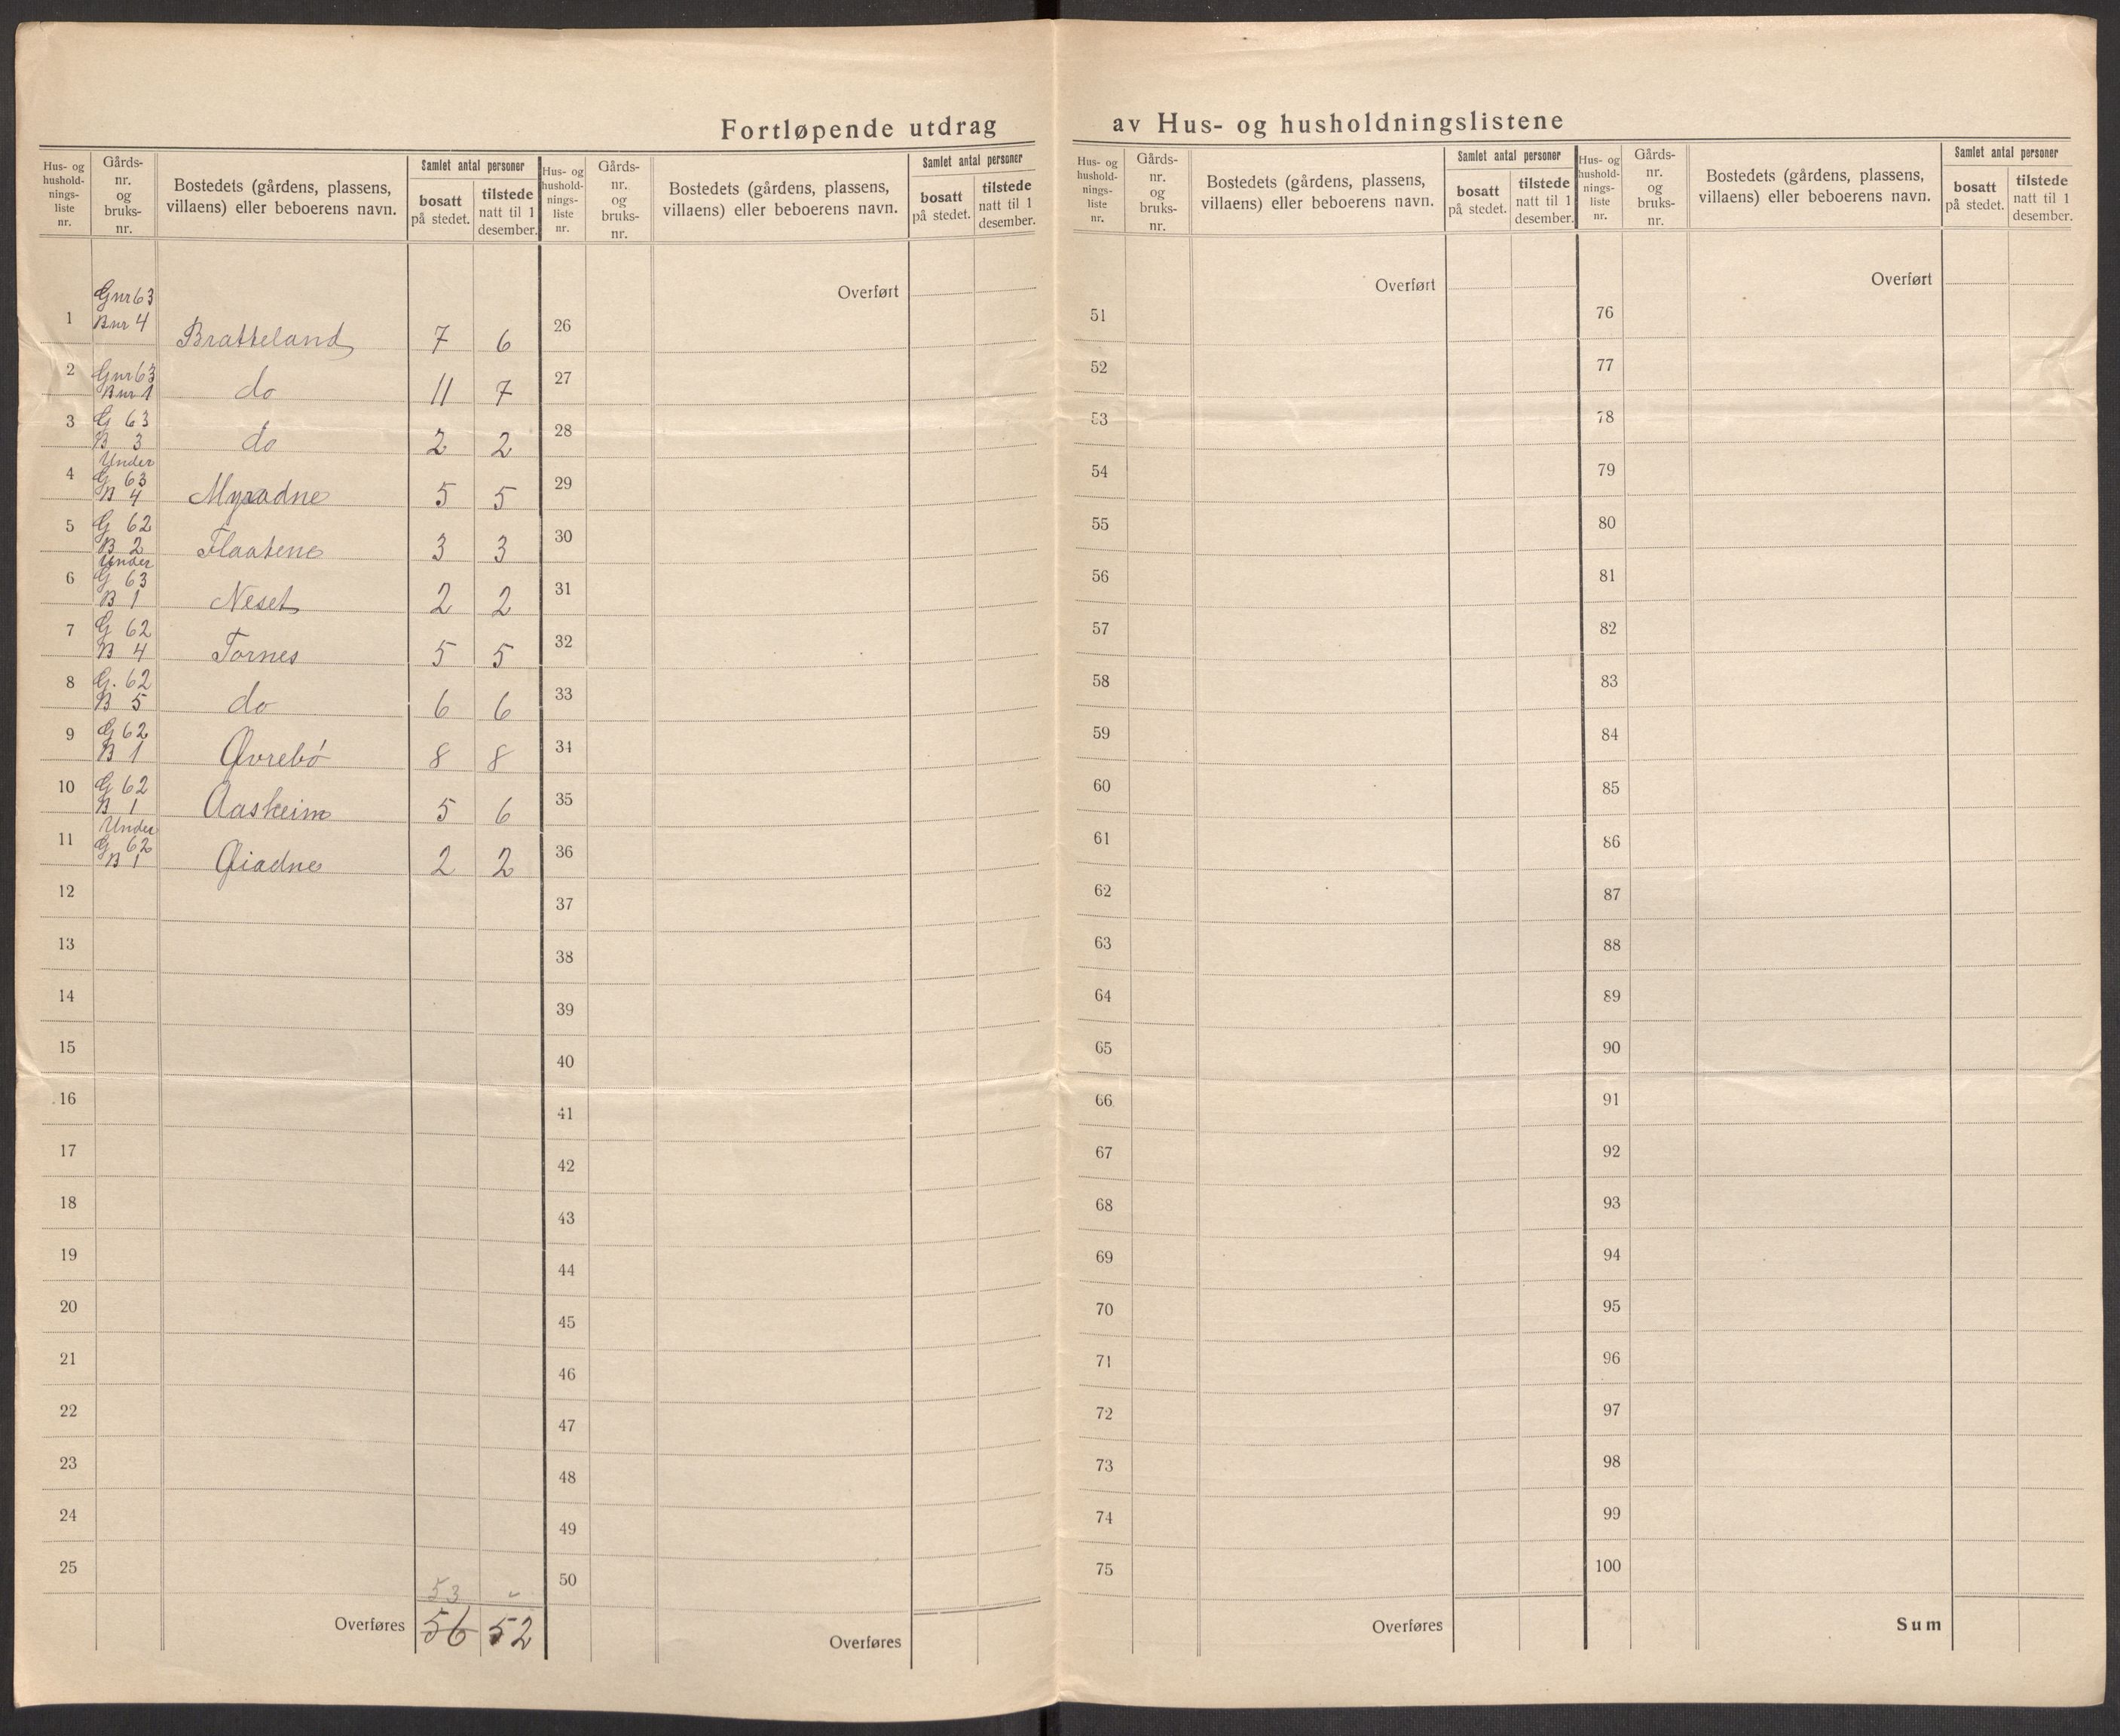 Fortløpende utdrag av Hus- og husholdningslistene
Hus- og hushold- nings- liste nr.
Gårds- nr. og bruks- nr.
Bostedets (gårdens, plassens, villaens) eller beboerens navn.
Samlet antal personer
bosatt på stedet.
tilstede natt til 1 desember.
Hus- og hushold- nings- liste nr.
Gårds- nr. og bruks- nr.
Bostedets (gårdens, plassens, villaens) eller beboerens navn.
Samlet antal personer
bosatt på stedet.
tilstede natt til 1 desember.
Hus- og hushold- nings- liste nr.
Gårds- nr. og bruks- nr.
Bostedets (gårdens, plassens, villaens) eller beboerens navn.
Samlet antal personer
bosatt på stedet.
tilstede natt til 1 desember.
Hus- og hushold- nings- liste nr.
Gårds- nr. og bruks- nr.
Bostedets (gårdens, plassens, villaens) eller beboerens navn.
Samlet antal personer
bosatt på stedet.
tilstede natt til 1 desember.
1 Gnr 63 Bnr 4 Bratteland 7 6
2 Gnr 63 Bnr 1 do 11 7
3 G 63 B 3 do 2 2
4 Under G 63 B 4 Myradne 5 5
5 G 62 B 2 Flaatene 3 3
6 Under G 63 B 1 Neset 2 2
7 G 62 B 4 Tornes 5 5
8 G. 62 B 5 do 6 6
9 G 62 B 1 Øvrebö 8 8
10 G 62 B 1 Aasheim 5 6
11 Under G 62 B 1 Øiadne 2 2
12
13
14
15
16
17
18
19
20
21
22
23
24
25
53 "
Overføres 56 52
Overført
26
27
28
29
30
31
32
33
34
35
36
37
38
39
40
41
42
43
44
45
46
47
48
49
50
Overføres
Overført
51
52
53
54
55
56
57
58
59
60
61
62
63
64
65
66
67
68
69
70
71
72
73
74
75
Overføres
Overført
76
77
78
79
80
81
82
83
84
85
86
87
88
89
90
91
92
93
94
95
96
97
98
99
100
Sum